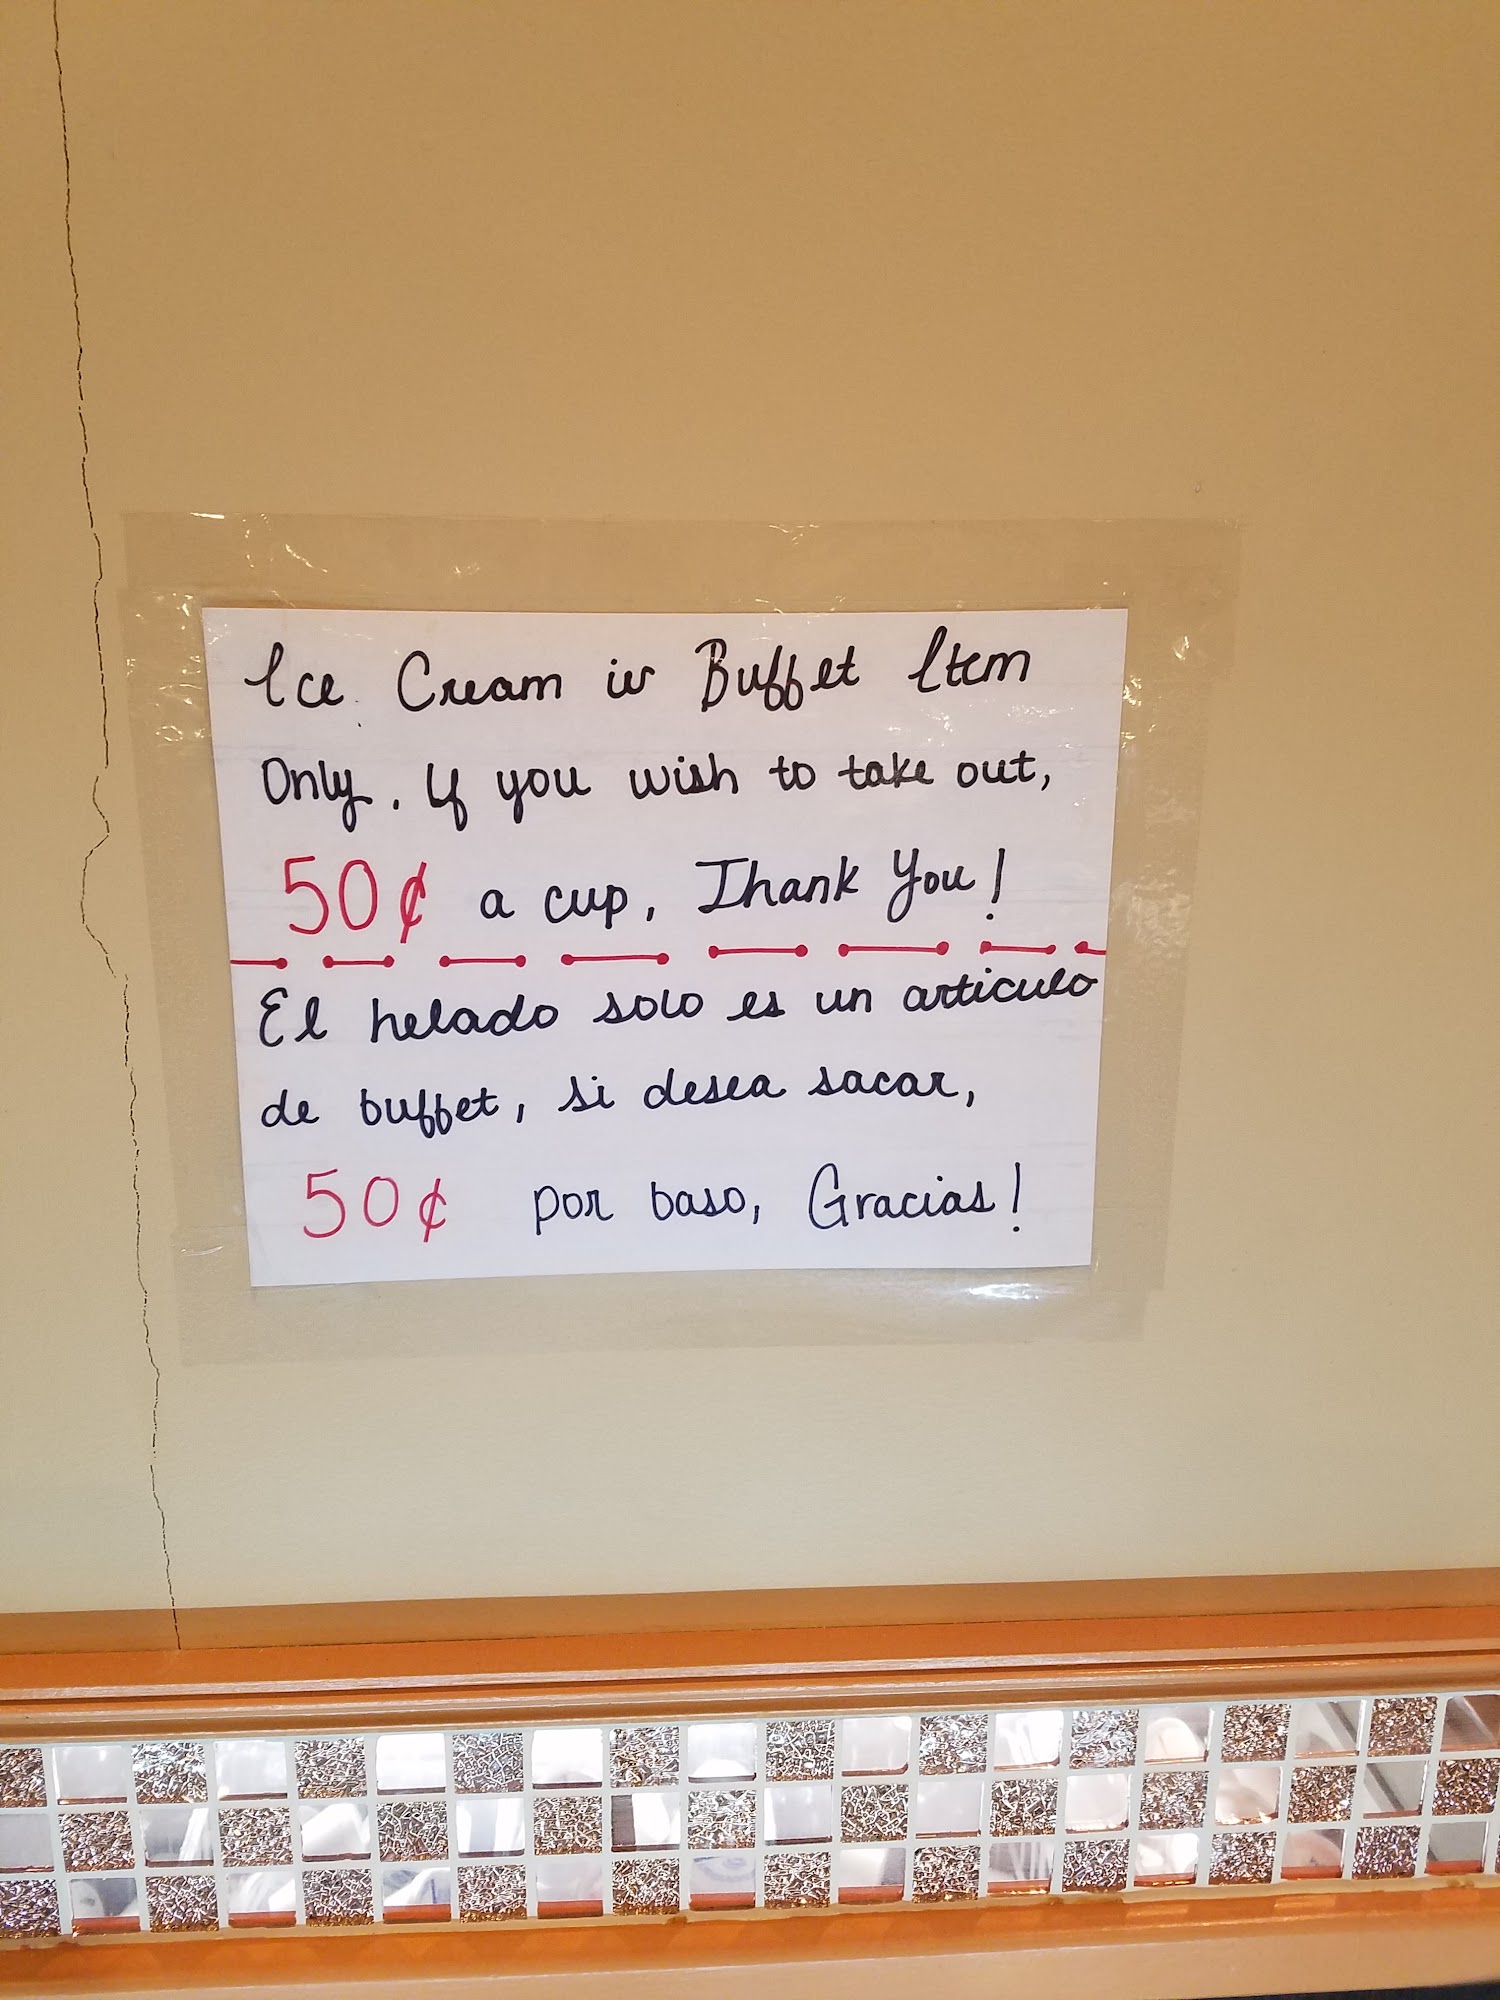 Ice Cream is Buffet Item
Only. If you wish to take out,
50¢ a cup, Thank You!
El helado solo es un articulo
de buffet, si desea sacar,
50¢ por baso, Gracias!